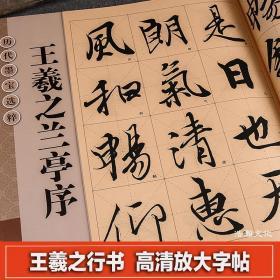 历代墨宝选粹
王羲之兰亭序
是日也天
朗氣清惠
風和暢仰
王羲之行书 高清放大字帖